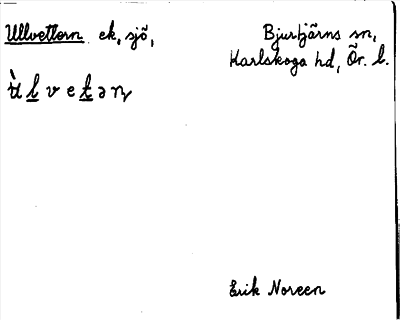 Ullvettern ek, sjö,
Bjurtjärns sn,
Karlskoga hd, Ör. l.
Erik Noreen